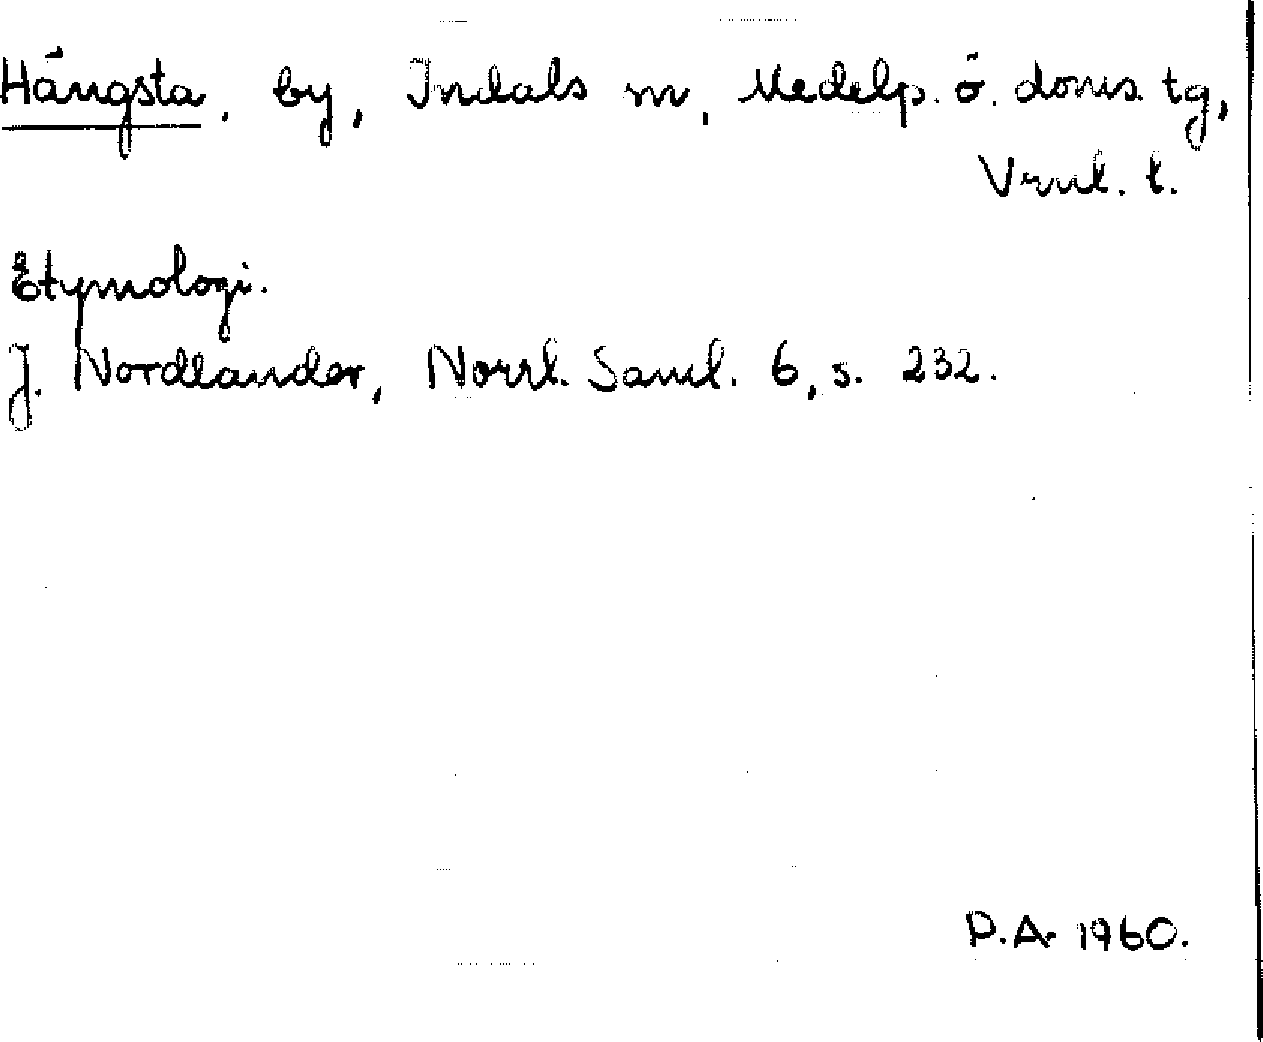 Hängsta, by, Indals sn, Medelp. ö. doms. tg,
Vrnl. l.
Etymologi.
J. Nordlander, Norrl. Saml. 6, s. 232.
P.A. 1960.